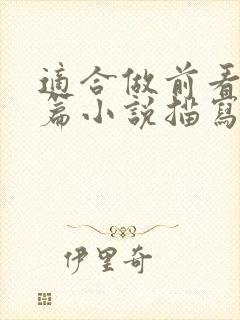 適合做前看
篇小說描寫
伊里奇